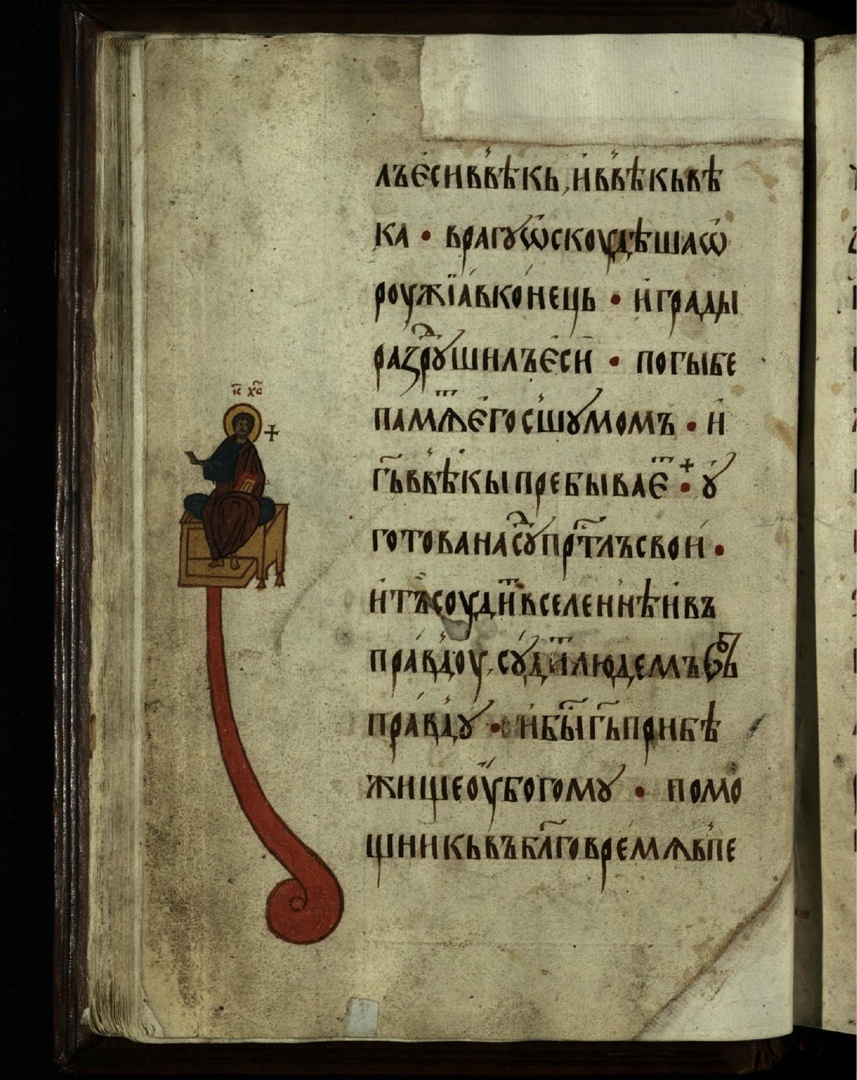 і҃с х҃с
лъєсивⸯвѣкь, ивⸯвѣкьвѣ
ка • врагуѿскоудѣшаѡ
роужїавконець • играды
разⷣрушилъєси • погыбе
памѧⷮєгосⸯшумомъ • и
г҃ьвⸯвѣкыпребываєⷮ • у
готованасуⷣпрⷭ҇тлъсвои •
итъсоудиⷮвселеннѣивъ
правⸯдоу, судиⷮлюдемъєвⷤъ
правⸯду • ибыⷭ҇г҃ьприбѣ
жищеоубогому • помо
щникьвъбл҃говремѧвⸯпе